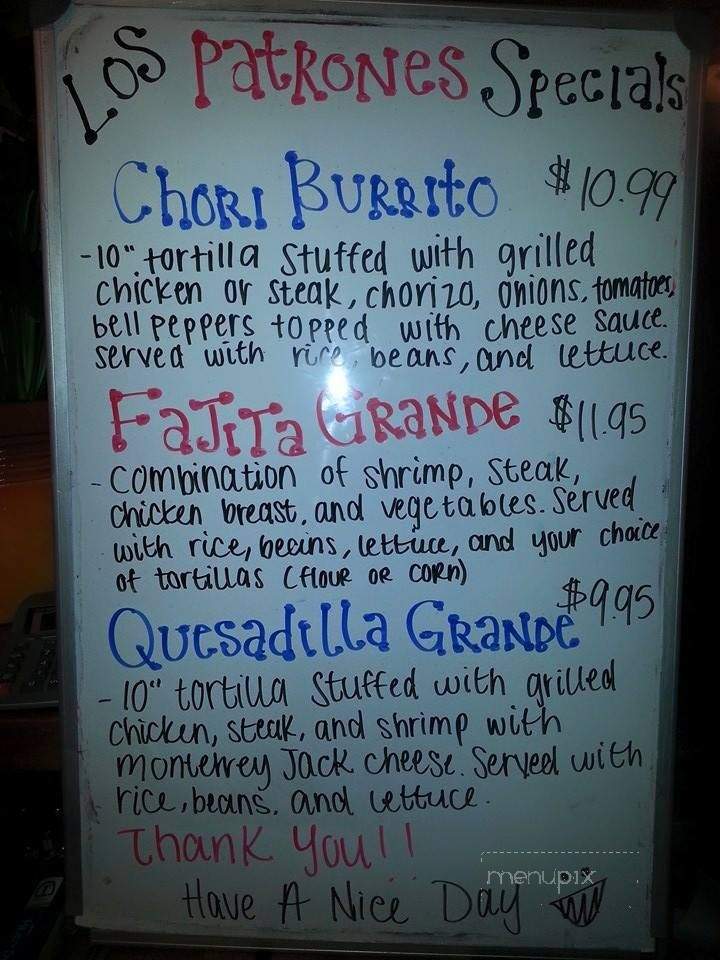 Los Patrones Specials
Chori Burrito $10.99
-10" tortilla stuffed with grilled
chicken or steak, chorizo, onions, tomatoes,
bell peppers topped with cheese sauce.
served with rice, beans, and lettuce.
Fajita Grande $11.95
- Combination of shrimp, steak,
chicken breast, and vegetables. Served
with rice, beans, lettuce, and your choice
of tortillas (flour or corn)
$9.95
Quesadilla Grande
- 10" tortilla stuffed with grilled
chicken, steak, and shrimp with
monterrey Jack cheese. Served with
rice, beans, and lettuce.
Thank You!!
Have A Nice Day
menupix